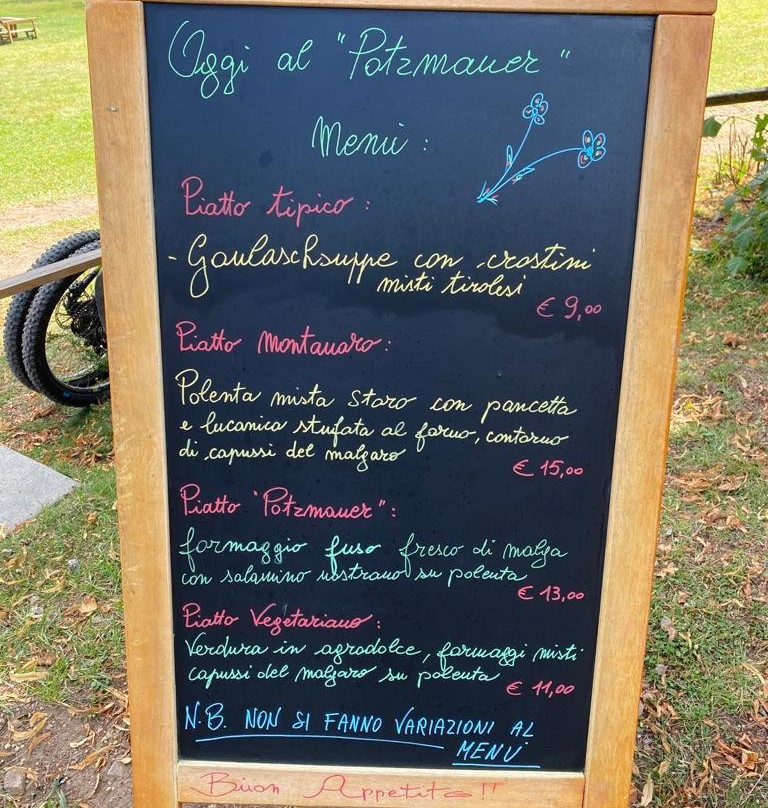 Oggi al "Potzmauer"
Menù :
Piatto tipico :
- Goulaschsuppe con crostini
misti tirolesi
€ 9,00
Piatto Montanaro :
Polenta mista Staro con pancetta
e lucanica stufata al forno, contorno
di capussi del malgaro
€ 15,00
Piatto "Potzmauer" :
formaggio fuso fresco di malga
con salamino nostrano su polenta
€ 13,00
Piatto Vegetariano :
Verdura in agrodolce, formaggi misti
capussi del malgaro su polenta
€ 11,00
N.B. NON SI FANNO VARIAZIONI AL
MENÙ
Buon Appetito !!